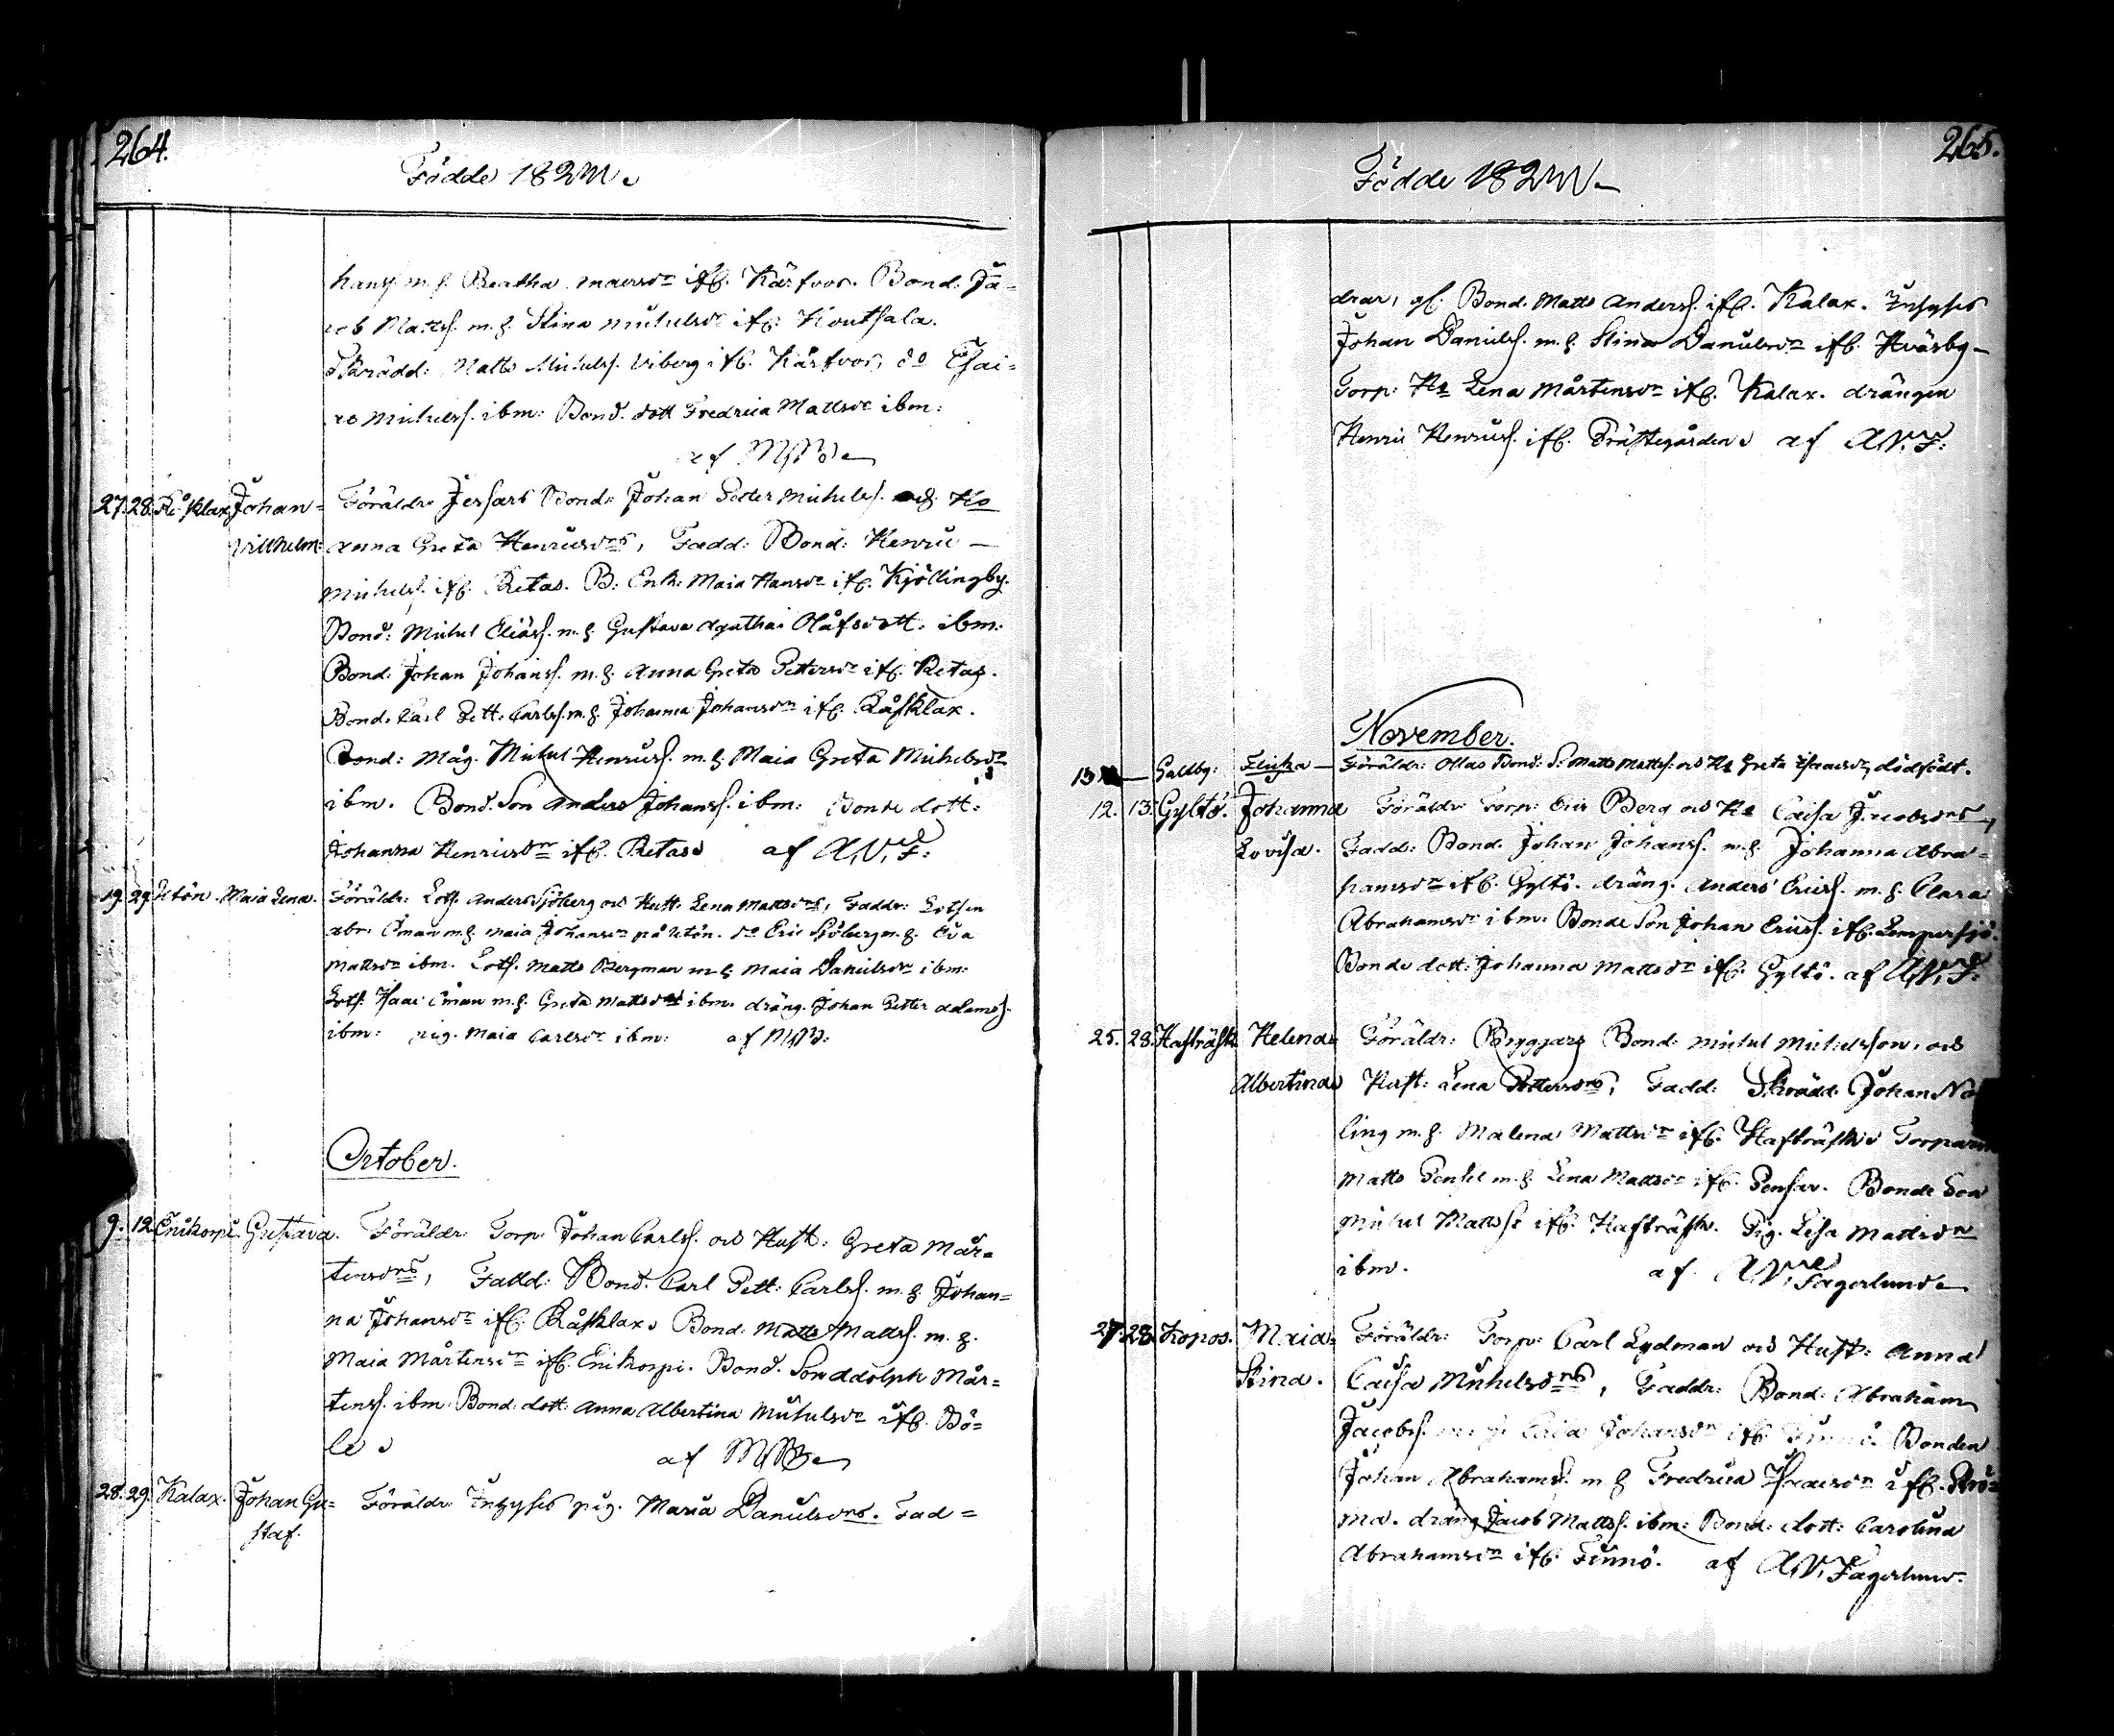 264.
Födde 182
hans. m. h. Beatha ifr. Kärfvor. Bond. Ja=
cob Mattss. m. h. Stina Michelsdr ifr. Houtsala.
Skrädd: Matts Michelss. Viberg ifr. Kärfvor, do Esai=
as Michelss. ibm: Bond. dott Fredrica Mattsdr ibm:
af
27. 28. Råsklax Johan= Föräldr. Bond: Johan Petter Michelss. och Ho
Villhelm: Anna Greta Henricsdrs, Fadd: Bond: Henric
Michelss. ifr. Retas. B: Enk: Maia Hansdr ifr. Kjöllingby.
Bond: Michel Eliäss. m. h. Gustava Agatha Olåfsdott. ibm:
Bond: Johan Johanss. m. h. Anna Greta Pettersdr ifr. Retas.
Bond. Carl Pett. Carlss. m. h. Johanna Johansdr ifr. Råsklax.
Bond: Måg. Michel Henricss. m. h. Maia Greta Michelsdr
ibm. Bond. Son Anders Johanss. ibm: Bonde dott:
Johanna Henricsdr ifr. Retas af A.V.F:
19. 29. Utön. Maia Lena. Föräldr: Lots. Anders Sjöberg och Hust. Lena Mattsdrs, Faddr: Lotsen
Abr. Öman m. h. Maia Johansdr på Utön. do Eric Sjöberg m. h. Eva
Mattsdr ibm. Lots. Matts Bergman m. h. Maia Danielsdr ibm:
Lots. Isaac Öman m. h. Greta Mattsdr ibm. dräng. Johan Petter Adamss.
ibm: pig. Maia Carlsdr ibm: af
October.
9. 12. Enikorpi. Gustava. Föräldr: Torp. Johan Carlss. och Hust: Greta Mår=
tensdrs, Fadd: Bond. Carl Pett: Carlss. m. h. Johan=
na Johansdr ifr. Råsklax. Bond: Matts Mattss. m. h.
Maia Mårtensdr ifr. Enikorpi. Bond. Son Adolph Mår=
tenss. ibm: Bond: dott: Anna Albertina Michelsdr ifr. Bö=
le af
28. 29. Kalax. Johan Gu= Föräldr. Inhyses pig. Maria Danielsdrs. Fad=
staf.
265.
Födde 182
drar, Bond. Matts Anderss. ifr. Kalax. Inhyses
Johan Danielss. m. h. Stina Danielsdr ifr. Hväsby
Torp: Ho Lena Mårtensdr ifr. Kalax. drängen
Henric Henricss. ifr. Prästegården af A.V.F:
November.
13 Galdby: Flicka Föräldr: Ollas Bond. S. Matts Mattss: och Ho Greta Isaacsdr, dödfödt.
12. 13. Gyltö. Johanna Föräldr Torp: Eric Berg och Ho Caisa Jacobsdrs,
Lovisa. Fadd: Bond. Johan Johanss. m. h. Johanna Abra=
hamsdr ifr. Gyltö. dräng. Anders Ericss. m. h. Clara
Abrahamsdr ibm: Bonde Son Johan Ericss. ifr. Lempersjö.
Bonde dott: Johanna Mattsdr ifr. Gyltö. af A.V.F:
25. 28. Hafträsk. Helena Föräldr: Byggars Bond: Michel Michelsson, och
Albertina Hust: Lena Pettersdrs, Fadd: Skrädd: Johan No
ling m. h. Malena Mattsdr ifr. Hafträsk. Torparen
Matts Pensel m. h. Lena Mattsdr ifr. Pensar. Bonde Son
Michel Mattss. ifr. Hafträsk. Pig. Lisa Mattsdr
ibm. af A.V. Fagerlund
27. 28. Kopos. Maia Föräldr: Torp: Carl Lydman och Hust: Anna
Stina. Caisa Michelsdrs, Faddr: Bond: Abraham
Jacobss. m. h. Caisa Johansdr ifr. Finnö. Bonden
Johan Abrahamss. m. h. Fredrica Isaacsdr ifr. Strö=
ma. dräng Jacob Mattss. ibm: Bond: dott: Carolina
Abrahamsdr ifr. Finnö. af A.V. Fagerlund.